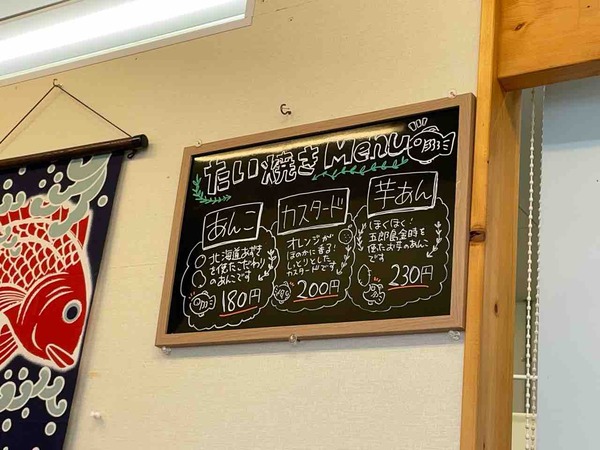 たい焼き Menu
あんこ
北海道あずき
を使たこだわり
のあんこです
180円
カスタード
オレンジが
ほのかに香る!
しっとりとした
カスタードです
200円
芋あん
ほくほく!
五郎島金時を
使たお芋のあんこ
です
230円